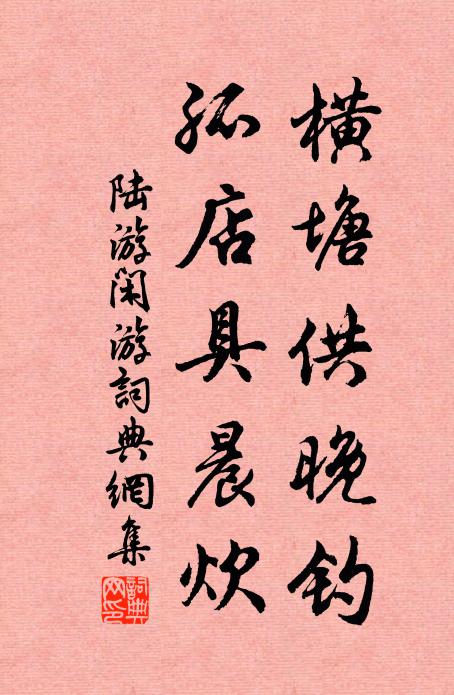 横塘供晚钓
孤店具晨炊
陆游闲游詞典網集
詞典网印